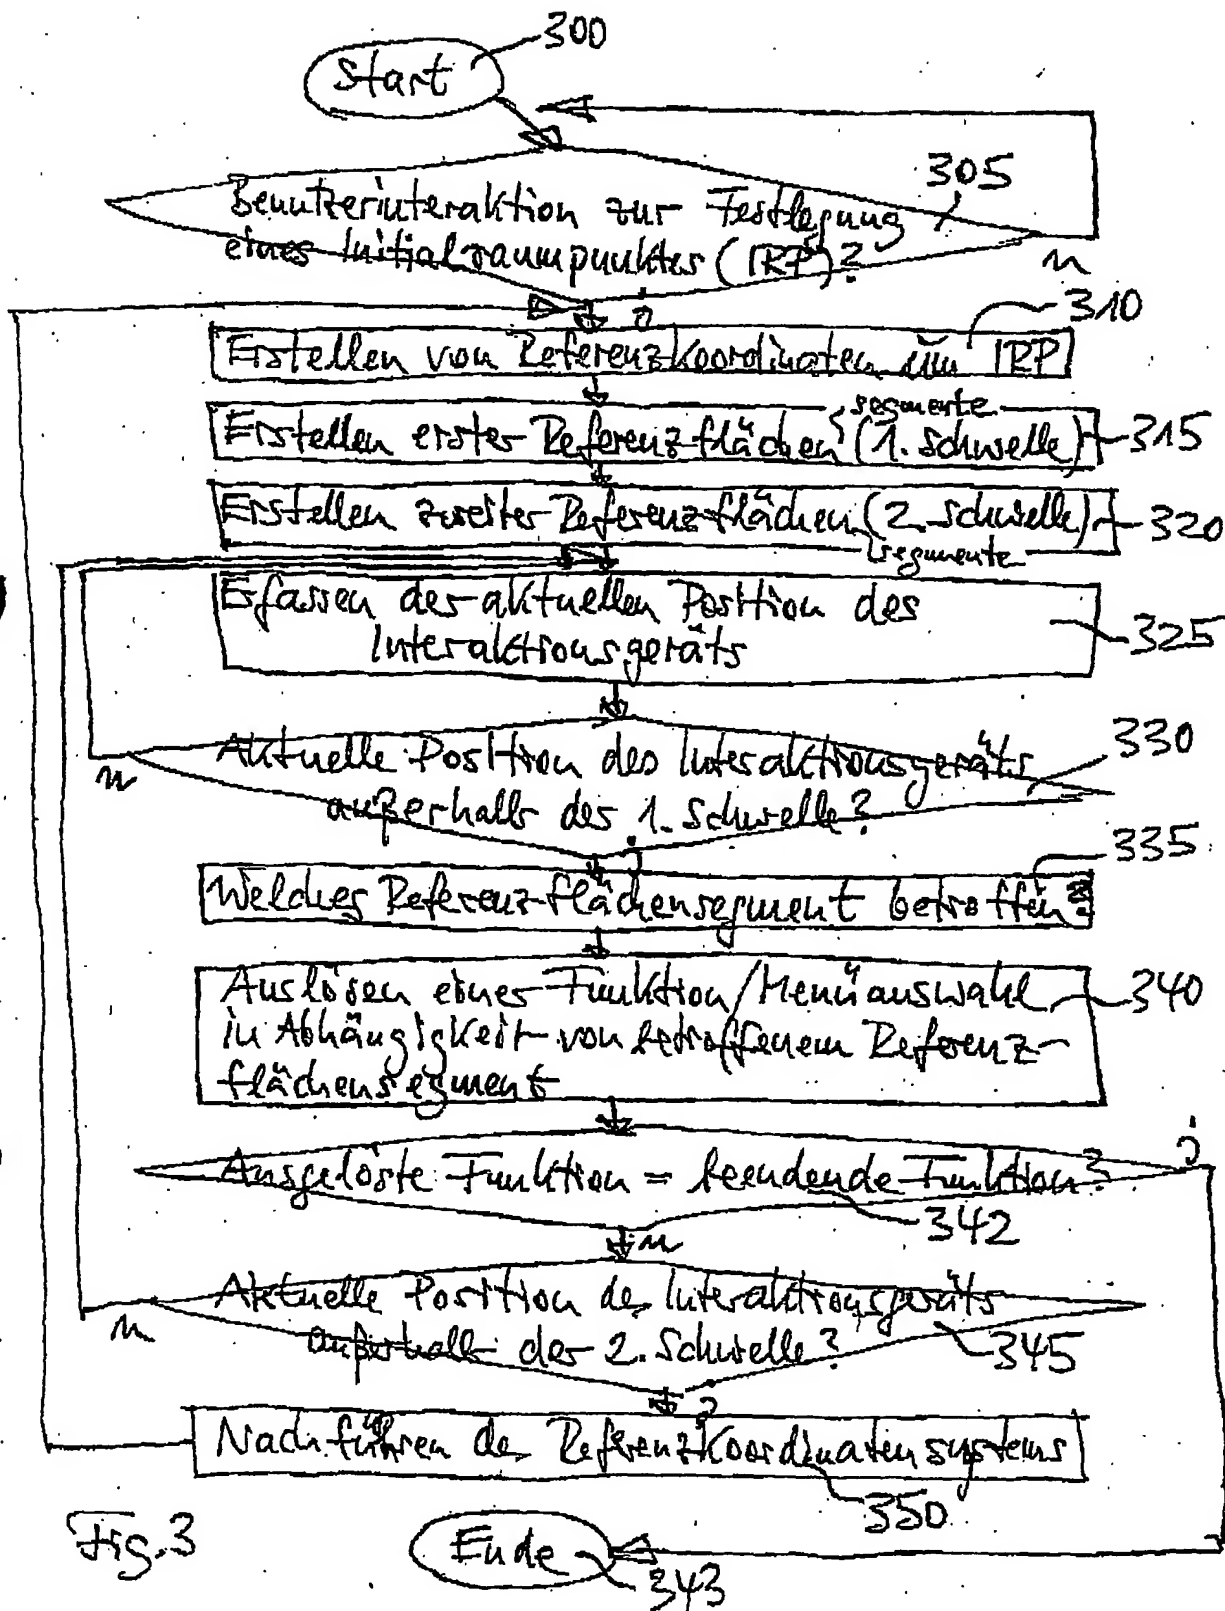 300
Start
305
Benutzerinteraktion zur Festlegung
eines Initialraumpunktes (IRP)?
n
j
310
Erstellen von Referenzkoordinaten um IRP
segmente
Erstellen erster Referenzflächen (1. Schwelle)
315
Erstellen zweiter Referenzflächen (2. Schwelle)
320
segmente
Erfassen der aktuellen Position des
Interaktionsgeräts
325
Aktuelle Position des Interaktionsgeräts
330
n
außerhalb der 1. Schwelle?
j
335
Welches Referenzflächensegment betroffen?
Auslösen einer Funktion/Menüauswahl
340
in Abhängigkeit von betroffenem Referenz-
flächensegment
j
Ausgelöste Funktion = beendende Funktion?
342
n
Aktuelle Position des Interaktionsgeräts
n
außerhalb der 2. Schwelle?
345
j
Nachführen des Referenzkoordinatensystems
350
Fig. 3
Ende
343